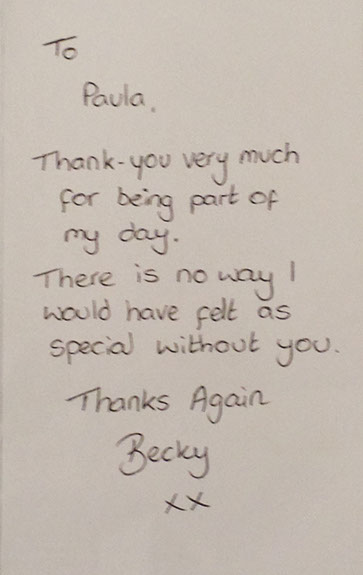 To
Paula.
Thank-you very much
for being part of
my day.
There is no way I
would have felt as
special without you.
Thanks Again
Becky
xx